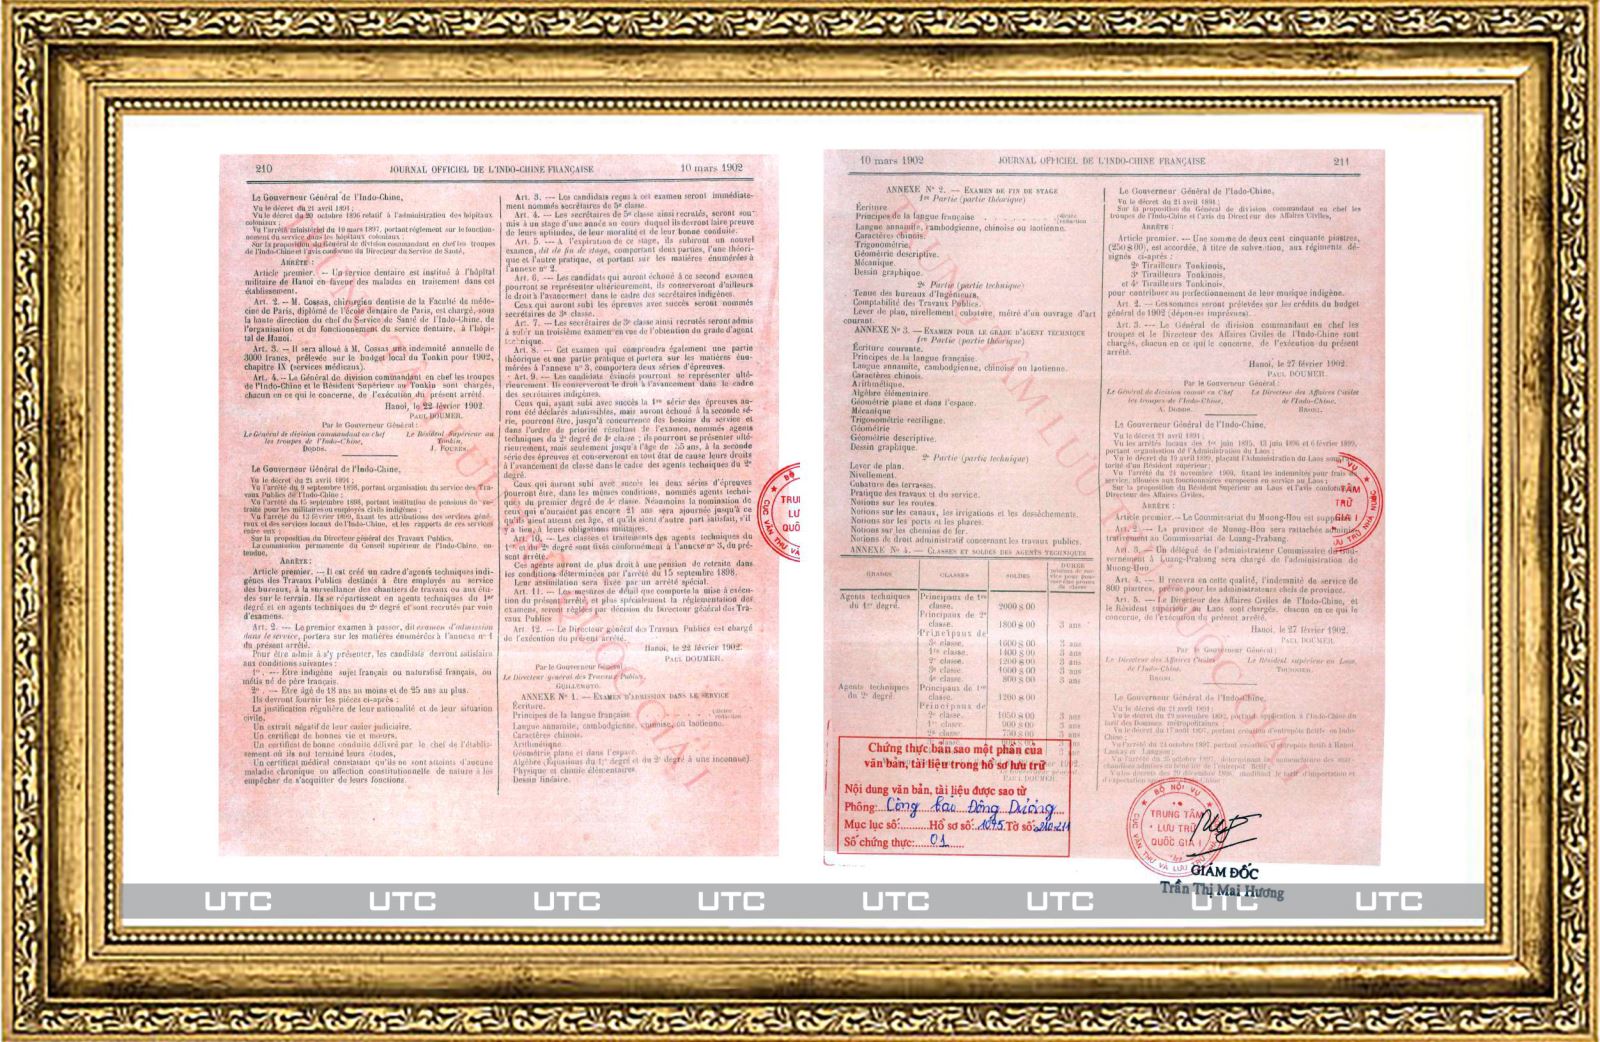 210 JOURNAL OFFICIEL DE L'INDO-CHINE FRANÇAISE 10 mars 1902
Le Gouverneur Général de l'Indo-Chine,
Vu le décret du 21 avril 1891 ;
Vu le décret du 20 octobre 1896 relatif à l'administration des hôpitaux
coloniaux ;
Vu l'arrêté ministériel du 10 mars 1897, portant règlement sur le fonction-
nement du service dans les hôpitaux coloniaux ;
Sur la proposition du Général de division commandant en chef les troupes
de l'Indo-Chine et l'avis conforme du Directeur du Service de Santé,
ARRÊTE :
Article premier. — Un service dentaire est institué à l'hôpital
militaire de Hanoi en faveur des malades en traitement dans cet
établissement.
Art. 2. — M. Cossas, chirurgien dentiste de la Faculté de méde-
cine de Paris, diplômé de l'école dentaire de Paris, est chargé, sous
la haute direction du chef du Service de Santé de l'Indo-Chine, de
l'organisation et du fonctionnement du service dentaire, à l'hôpi-
tal de Hanoi.
Art. 3. — Il sera alloué à M. Cossas une indemnité annuelle de
3000 francs, prélevée sur le budget local du Tonkin pour 1902,
chapitre IX (services médicaux).
Art. 4. — Le Général de division commandant en chef les troupes
de l'Indo-Chine et le Résident Supérieur au Tonkin sont chargés,
chacun en ce qui le concerne, de l'exécution du présent arrêté.
Hanoi, le 22 février 1902.
PAUL DOUMER.
Par le Gouverneur Général :
Le Général de division commandant en chef Le Résident Supérieur au
les troupes de l'Indo-Chine, Tonkin,
DODDS. J. FOURÈS.
Le Gouverneur Général de l'Indo-Chine,
Vu le décret du 21 avril 1891 ;
Vu l'arrêté du 9 septembre 1898, portant organisation du service des Tra-
vaux Publics de l'Indo-Chine ;
Vu l'arrêté du 15 septembre 1898, portant institution de pensions de re-
traite pour les militaires ou employés civils indigènes ;
Vu l'arrêté du 13 février 1899, fixant les attributions des services géné-
raux et des services locaux de l'Indo-Chine, et les rapports de ces services
entre eux ;
Sur la proposition du Directeur général des Travaux Publics.
La commission permanente du Conseil supérieur de l'Indo-Chine, en-
tendue,
ARRÊTE :
Article premier. — Il est créé un cadre d'agents techniques indi-
gènes des Travaux Publics destinés à être employés au service
des bureaux, à la surveillance des chantiers de travaux ou aux étu-
des sur le terrain. Ils se répartissent en agents techniques du 1er
degré et en agents techniques du 2e degré et sont recrutés par voie
d'examens.
Art. 2. — Le premier examen à passer, dit examen d'admission
dans le service, portera sur les matières énumérées à l'annexe n° 1
du présent arrêté.
Pour être admis à s'y présenter, les candidats devront satisfaire
aux conditions suivantes :
1°. — Etre indigène sujet français ou naturalisé français, ou
métis né de père français.
2°. — Etre âgé de 18 ans au moins et de 25 ans au plus.
Ils devront fournir les pièces ci-après :
La justification régulière de leur nationalité et de leur situation
civile.
Un extrait négatif de leur casier judiciaire.
Un certificat de bonnes vie et mœurs.
Un certificat de bonne conduite délivré par le chef de l'établis-
sement où ils ont terminé leurs études.
Un certificat médical constatant qu'ils ne sont atteints d'aucune
maladie chronique ou affection constitutionnelle de nature à les
empêcher de s'acquitter de leurs fonctions.
Art. 3. — Les candidats reçus à cet examen seront immédiate-
ment nommés secrétaires de 5e classe.
Art. 4. — Les secrétaires de 5e classe ainsi recrutés, seront sou-
mis à un stage d'une année au cours duquel ils devront faire preuve
de leurs aptitudes, de leur moralité et de leur bonne conduite.
Art. 5. — A l'expiration de ce stage, ils subiront un nouvel
examen, dit de fin de stage, comportant deux parties, l'une théori-
que et l'autre pratique, et portant sur les matières énumérées à
l'annexe n° 2.
Art. 6. — Les candidats qui auront échoué à ce second examen
pourront se représenter ultérieurement, ils conserveront d'ailleurs
le droit à l'avancement dans le cadre des secrétaires indigènes.
Ceux qui auront subi les épreuves avec succès seront nommés
secrétaires de 3e classe.
Art. 7. — Les secrétaires de 3e classe ainsi recrutés seront admis
à subir un troisième examen en vue de l'obtention du grade d'agent
technique.
Art. 8. — Cet examen qui comprendra également une partie
théorique et une partie pratique et portera sur les matières énu-
mérées à l'annexe n° 3, comportera deux séries d'épreuves.
Art. 9. — Les candidats évincés pourront se représenter ulté-
rieurement. Ils conserveront le droit à l'avancement dans le cadre
des secrétaires indigènes.
Ceux qui, ayant subi avec succès la 1re série des épreuves au-
ront été déclarés admissibles, mais auront échoué à la seconde sé-
rie, pourront être, jusqu'à concurrence des besoins du service et
dans l'ordre de priorité résultant de l'examen, nommés agents
techniques du 2e degré de 4e classe ; ils pourront se présenter ulté-
rieurement, mais seulement jusqu'à l'âge de 35 ans, à la seconde
série des épreuves et conserveront en tout état de cause leurs droits
à l'avancement de classe dans le cadre des agents techniques du 2e
degré.
Ceux qui auront subi avec succès les deux séries d'épreuves
pourront être, dans les mêmes conditions, nommés agents techni-
ques du premier degré de 4e classe. Néanmoins la nomination de
ceux qui n'auraient pas encore 21 ans sera ajournée jusqu'à ce
qu'ils aient atteint cet âge, et qu'ils aient d'autre part satisfait, s'il
y a lieu, à leurs obligations militaires.
Art. 10. — Les classes et traitements des agents techniques du
1er et du 2e degré sont fixés conformément à l'annexe n° 3, du pré-
sent arrêté.
Ces agents auront de plus droit à une pension de retraite dans
les conditions déterminées par l'arrêté du 15 septembre 1898.
Leur assimilation sera fixée par un arrêté spécial.
Art. 11. — Les mesures de détail que comporte la mise à exécu-
tion du présent arrêté, et plus spécialement la réglementation des
examens, seront réglés par décision du Directeur général des Tra-
vaux Publics
Art. 12. — Le Directeur général des Travaux Publics est chargé
de l'exécution du présent arrêté.
Hanoi, le 22 février 1902.
PAUL DOUMER.
Par le Gouverneur Général :
Le Directeur général des Travaux Publics,
GUILLEMOTO.
ANNEXE N° 1. — EXAMEN D'ADMISSION DANS LE SERVICE
Écriture.
Principes de la langue française dictée rédaction
Langue annamite, cambodgienne, chinoise, ou laotienne.
Caractères chinois.
Arithmétique.
Géométrie plane et dans l'espace.
Algèbre (Équations du 1er degré et du 2e degré à une inconnue).
Physique et chimie élémentaires.
Dessin linéaire.
10 mars 1902 JOURNAL OFFICIEL DE L'INDO-CHINE FRANÇAISE 211
ANNEXE N° 2. — EXAMEN DE FIN DE STAGE
1re Partie (partie théorique)
Écriture
Principes de la langue française dictée rédaction
Langue annamite, cambodgienne, chinoise ou laotienne.
Caractères chinois.
Trigonométrie.
Géométrie descriptive.
Mécanique.
Dessin graphique.
2e Partie (partie technique)
Tenue des bureaux d'Ingénieurs.
Comptabilité des Travaux Publics.
Lever de plan, nivellement, cubature, métré d'un ouvrage d'art
courant.
ANNEXE N° 3. — EXAMEN POUR LE GRADE D'AGENT TECHNIQUE
1re Partie (partie théorique)
Écriture courante.
Principes de la langue française.
Langue annamite, cambodgienne, chinoise ou laotienne.
Caractères chinois.
Arithmétique.
Algèbre élémentaire.
Géométrie plane et dans l'espace.
Mécanique
Trigonométrie rectiligne.
Géométrie
Géométrie descriptive.
Dessin graphique.
2e Partie (partie technique)
Lever de plan.
Nivellement.
Cubature des terrasses.
Pratique des travaux et du service.
Notions sur les routes.
Notions sur les canaux, les irrigations et les dessèchements.
Notions sur les ports et les phares.
Notions sur les chemins de fer.
Notions de droit administratif concernant les travaux publics.
ANNEXE N° 4. — CLASSES ET SOLDES DES AGENTS TECHNIQUES
GRADES CLASSES SOLDES DURÉE
Agents techniques du 1er degré. Principaux de 1re classe. 2000 $ 00
Principaux de 2e classe. 1800 $ 00 3 ans
Principaux de 3e classe. 1600 $ 00 3 ans
1re classe. 1400 $ 00 3 ans
2e classe. 1200 $ 00 3 ans
3e classe. 1000 $ 00 3 ans
4e classe. 800 $ 00 3 ans
Agents techniques du 2e degré. Principaux de 1re classe. 1200 $ 00
Principaux de 2e classe. 1050 $ 00 3 ans
1re classe. 900 $ 00 3 ans
2e classe. 750 $ 00 3 ans
PAUL DOUMER.
Chứng thực bản sao một phần của
văn bản, tài liệu trong hồ sơ lưu trữ
Nội dung văn bản, tài liệu được sao từ
Phông: Công báo Đông Dương
Mục lục số:.........Hồ sơ số: 1095 Tờ số: 210-211
Số chứng thực: 01
Le Gouverneur Général de l'Indo-Chine,
Vu le décret du 21 avril 1891 ;
Sur la proposition du Général de division commandant en chef les
troupes de l'Indo-Chine et l'avis du Directeur des Affaires Civiles,
ARRÊTE :
Article premier. — Une somme de deux cent cinquante piastres,
(250 $ 00), est accordée, à titre de subvention, aux régiments dé-
signés ci-après :
2e Tirailleurs Tonkinois,
3e Tirailleurs Tonkinois,
et 4e Tirailleurs Tonkinois,
pour contribuer au perfectionnement de leur musique indigène.
Art. 2. — Ces sommes seront prélevées sur les crédits du budget
général de 1902 (dépenses imprévues).
Art. 3. — Le Général de division commandant en chef les
troupes et le Directeur des Affaires Civiles de l'Indo-Chine sont
chargés, chacun en ce qui le concerne, de l'exécution du présent
arrêté.
Hanoi, le 27 février 1902.
PAUL DOUMER.
Par le Gouverneur Général :
Le Général de division commandant en Chef Le Directeur des Affaires Civiles
les troupes de l'Indo-Chine, de l'Indo-Chine,
A. DODDS. BRONI.
Le Gouverneur Général de l'Indo-Chine,
Vu le décret du 21 avril 1891 ;
Vu les arrêtés locaux des 1er juin 1895, 13 juin 1896 et 6 février 1899,
portant organisation de l'Administration du Laos ;
Vu le décret du 19 avril 1899, plaçant l'Administration du Laos sous l'au-
torité d'un Résident supérieur ;
Sur la proposition du Résident Supérieur au Laos et l'avis conforme du
Directeur des Affaires Civiles,
ARRÊTE :
Article premier. — Le Commissariat du Muong-Hou est supprimé.
Art. 2. — La province de Muong-Hou sera rattachée adminis-
trativement au Commissariat de Luang-Prabang.
Art. 3. — Un délégué de l'administrateur Commissaire du Gou-
vernement à Luang-Prabang sera chargé de l'administration de
Muong-Hou.
Art. 4. — Il recevra en cette qualité, l'indemnité de service de
800 piastres, prévue pour les administrateurs chefs de province.
Art. 5. — Le Directeur des Affaires Civiles de l'Indo-Chine, et
le Résident supérieur au Laos sont chargés, chacun en ce qui le
concerne, de l'exécution du présent arrêté.
Hanoi, le 27 février 1902.
PAUL DOUMER.
Par le Gouverneur Général :
Le Directeur des Affaires Civiles Le Résident supérieur au Laos,
de l'Indo-Chine, TOURNIER.
BRONI.
Le Gouverneur Général de l'Indo-Chine,
Vu le décret du 21 avril 1891 ;
BỘ NỘI VỤ
TRUNG TÂM
LƯU TRỮ
QUỐC GIA I
CỤC VĂN THƯ VÀ LƯU TRỮ NHÀ NƯỚC
GIÁM ĐỐC
Trần Thị Mai Hương
UTC UTC UTC UTC UTC UTC UTC UTC